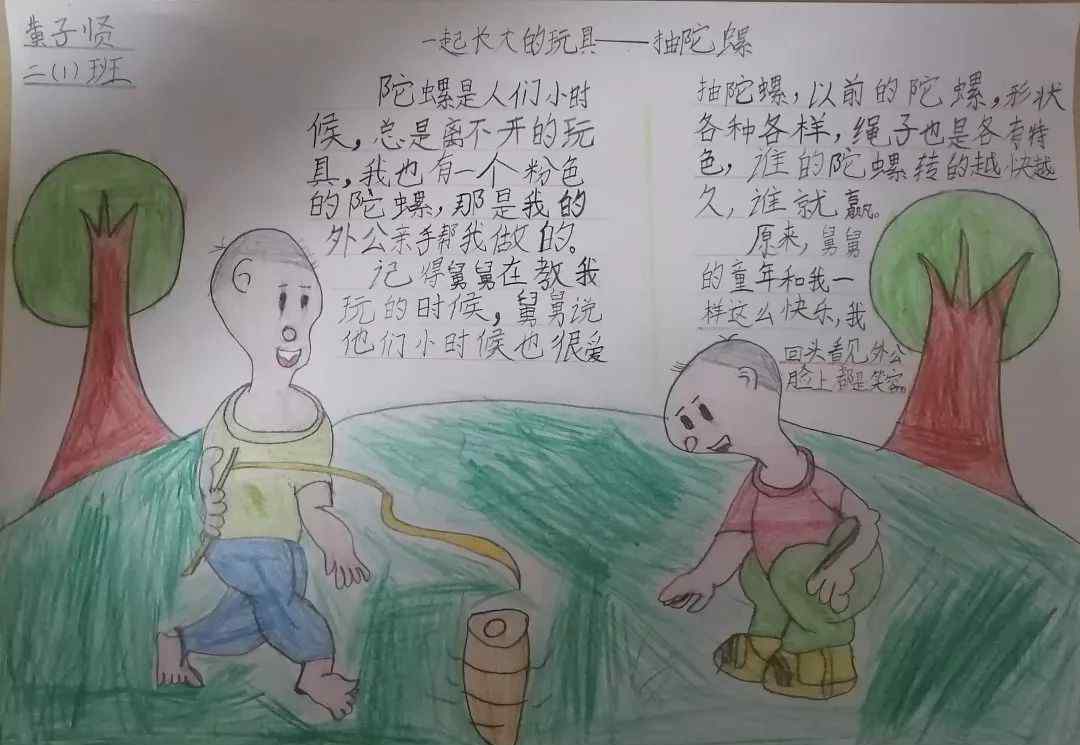 黄子贤
二(1)班
一起长大的玩具——抽陀螺
陀螺是人们小时
候，总是离不开的玩
具，我也有一个粉色
的陀螺，那是我的
外公亲手帮我做的。
记得舅舅在教我
玩的时候，舅舅说
他们小时候也很爱
抽陀螺，以前的陀螺，形状
各种各样，绳子也是各有特
色，谁的陀螺转的越快越
久，谁就赢。
原来，舅舅
的童年和我一
样这么快乐，我
回头看见外公
脸上都是笑容。